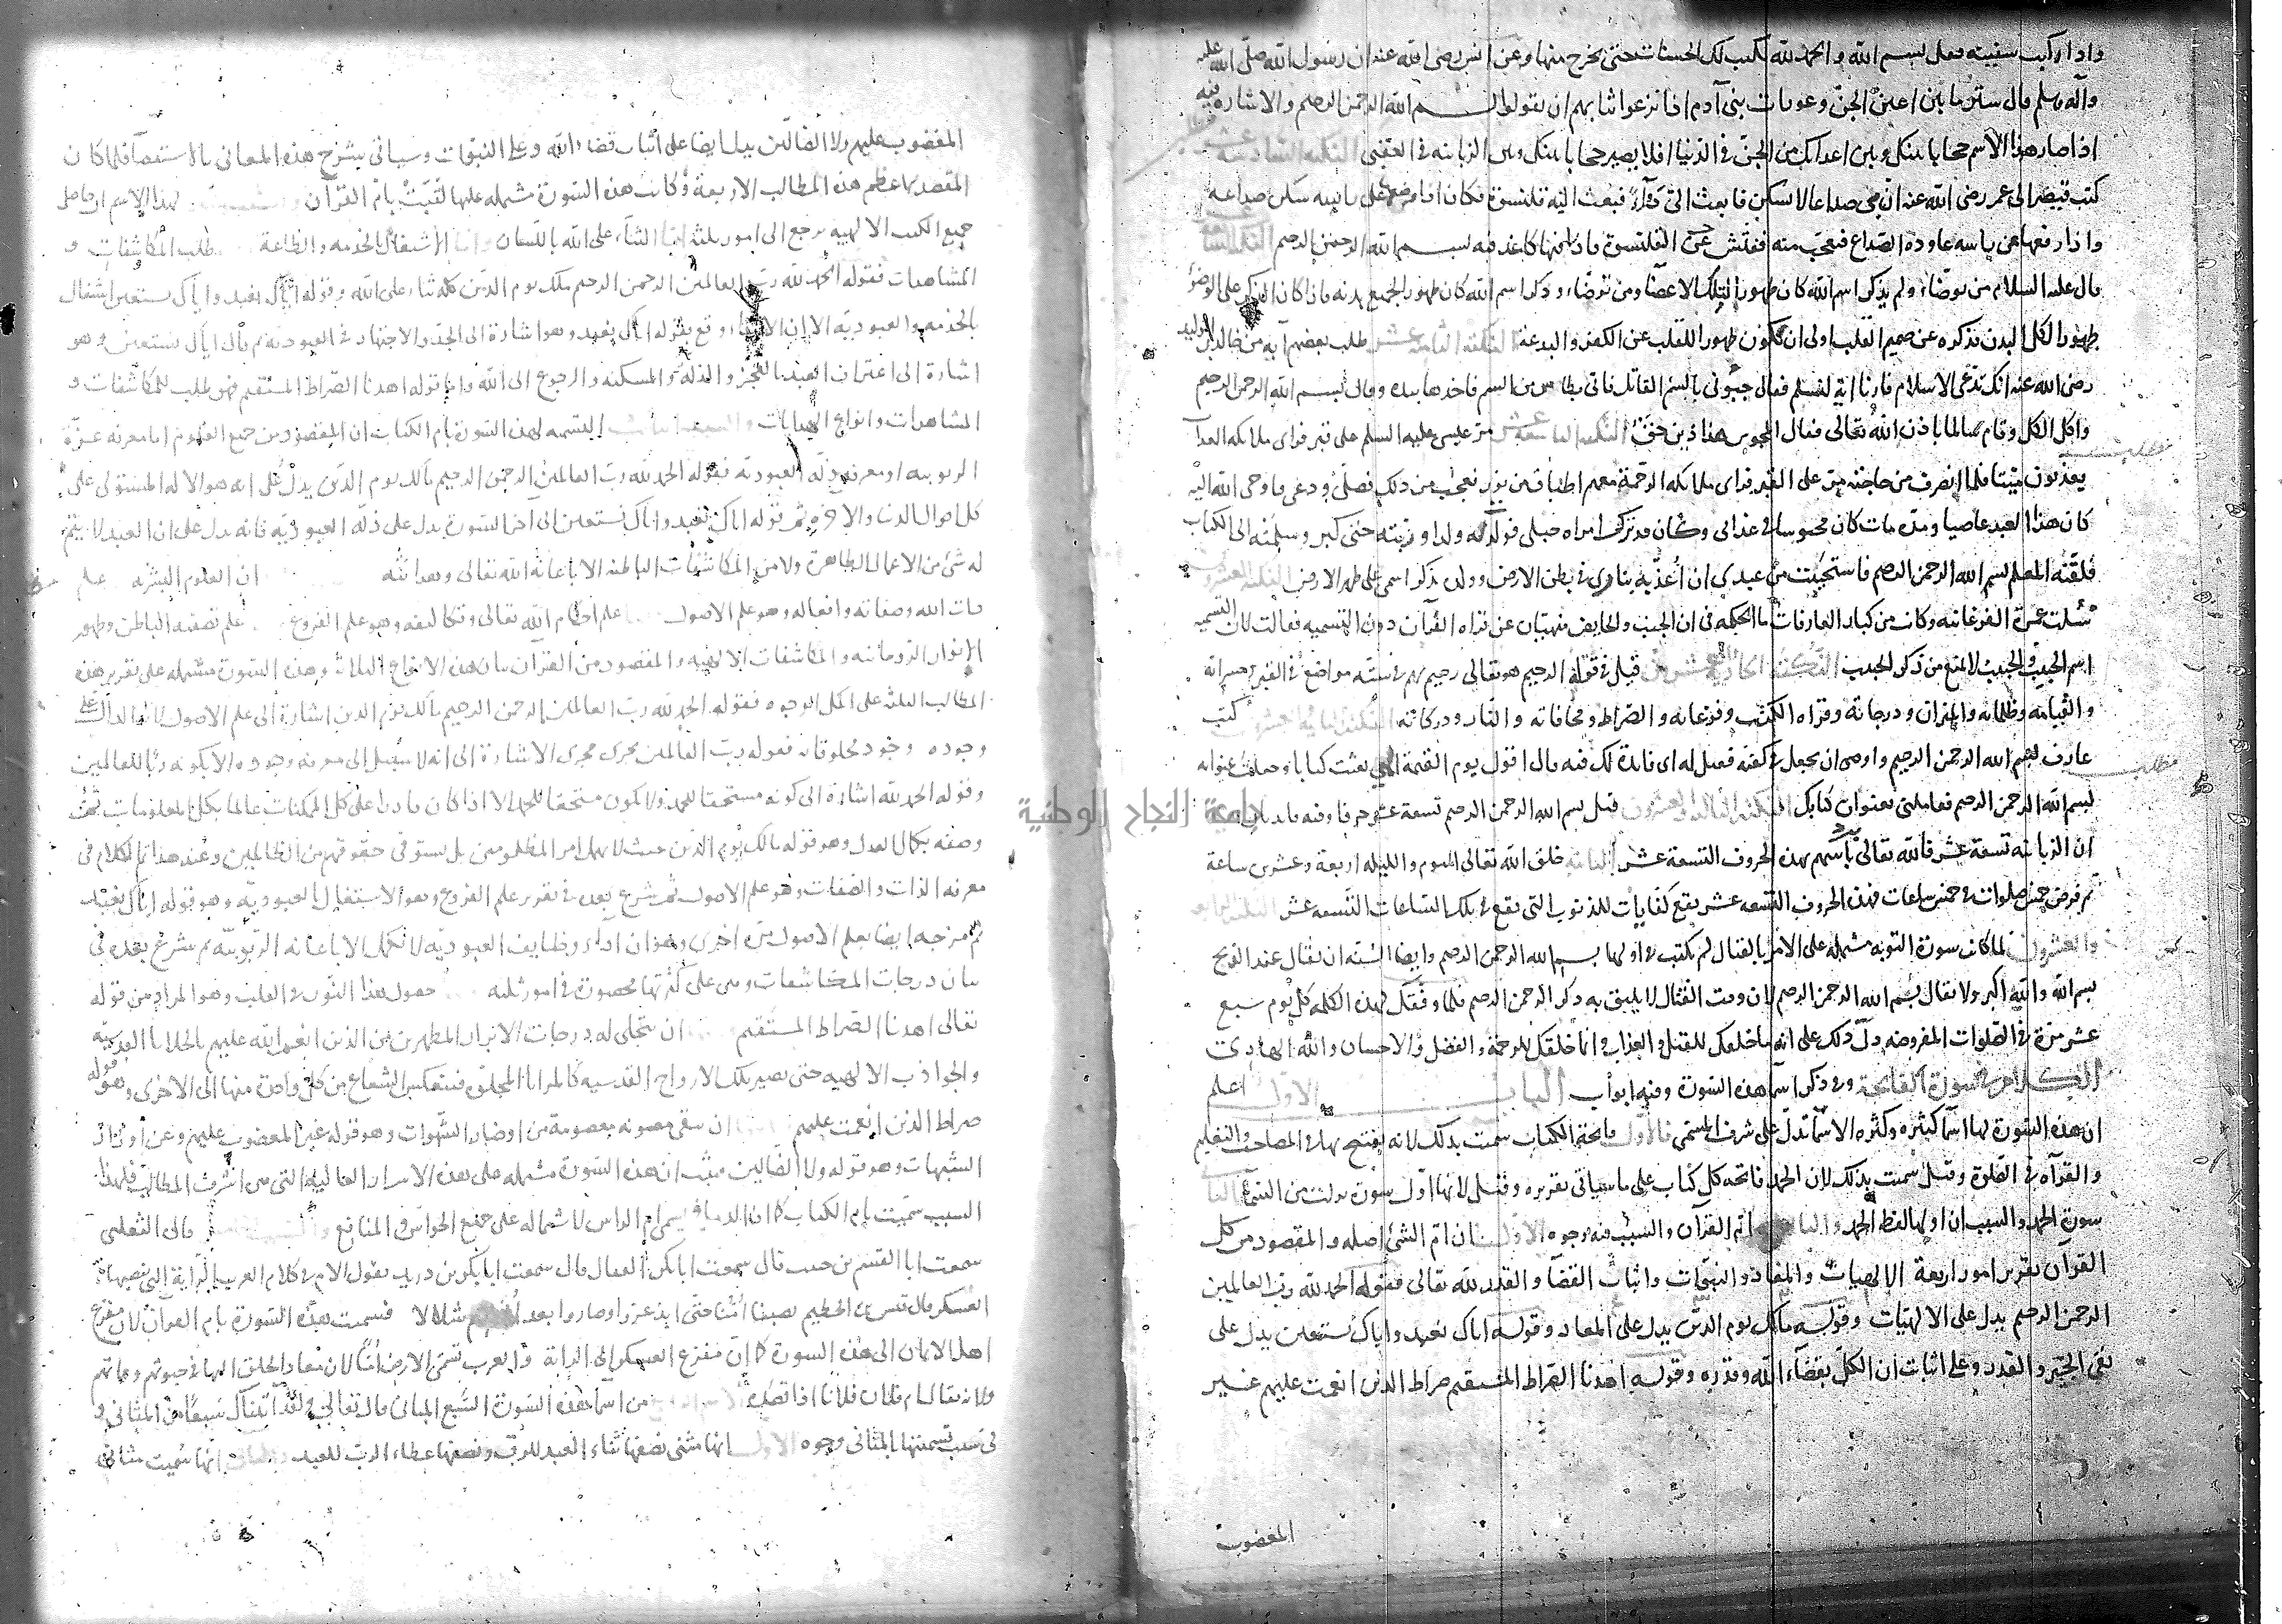 واذا ركبت سفينة فقل بسم الله والحمد لله يكتب لك الحسنات حتى تخرج منها وعن انس رضى الله عنه ان رسول الله صلى الله عليه
وآله وسلم قال ستر ما بين اعين الجن وعورات بنى آدم اذا نزعوا ثيابهم ان يقولوا بسم الله الرحمن الرحيم والاشارة فيه
اذا صار هذا الاسم حجابا بينك وبين اعدائك من الجن فى الدنيا افلا يصير حجابا بينك وبين الزبانية فى العقبى النكتة السادسة عشر
كتب قيصر الى عمر رضى الله عنه ان بى صداعا لا يسكن فابعث الى دواء فبعث اليه قلنسوة فكان اذا وضعها على راسه سكن صداعه
واذا رفعها عن راسه عاوده الصداع فعجب منه ففتش عن القلنسوة فاذا فيها كاغد فيه بسم الله الرحمن الرحيم
قال عليه السلام من توضاء ولم يذكر اسم الله كان طهورا لتلك الاعضاء ومن توضاء وذكر اسم الله كان طهورا لجميع بدنه فاذا كان الذكر على الوضوء
طهورا لكل البدن فذكره عن صميم القلب اولى ان يكون طهورا للقلب عن الكفر والبدعة النكتة الثامنة عشر طلب بعضهم آية من خالد بن الوليد
رضى الله عنه انك تدعى الاسلام فارنا اية لنسلم فقال جيئونى بالسم القاتل فاتى بطاس من السم فاخذها بيده وقال بسم الله الرحمن الرحيم
واكل الكل وقام سالما باذن الله تعالى فقال المجوس هذا دين حق النكتة التاسعة عشر مر عيسى عليه السلم على قبر فراى ملائكة العذاب
يعذبون ميتا فلما انصرف من حاجته مر على القبر فراى ملائكة الرحمة معهم اطباق من نور فعجب من ذلك فصلى ودعى فاوحى الله اليه
كان هذا العبد عاصيا ومذ مات كان محبوسا فى عذابى وكان قد ترك امراه حبلى فولدت له ولدا وربته حتى كبر وسلمته الى الكتاب
فلقنه المعلم بسم الله الرحمن الرحيم فاستحييت من عبدى ان اعذبه بنارى فى بطن الارض وولده يذكر اسمى على ظهر الارض النكتة العشرون
سئلت عمرة الفرغانية وكانت من كبار العارفات ما الحكمة فى ان الجنب والحايض منهيان عن قراة القرآن دون التسمية فقالت لان التسمية
اسم الحبيب والحبيب لا يمنع من ذكر الحبيب النكتة الحادية عشرون قيل فى قوله الرحيم هو تعالى رحيم بهم فى ستة مواضع فى القبر وحسراته
والقيامة وظلماته والميزان ودرجاته وقراه الكتب وفزعاته والصراط ومخافاته والنار ودركاته النكتة الثانية عشرون كتب
عارف بسم الله الرحمن الرحيم واوصى ان يجعل فى كفنه فقيل له اى فايدة لك فيه قال اقول يوم القيمة الهى بعثت كتابا وجعلت عنوانه
بسم الله الرحمن الرحيم فعاملنى بعنوان كتابك النكتة الثالثة والعشرون قيل بسم الله الرحمن الرحيم تسعة عشر حرفا وفيه فايدتان
ان الزبانية تسعة عشر فالله تعالى باسهم بهذه الحروف التسعة عشر الثانية خلق الله تعالى اليوم والليلة اربعة وعشرين ساعة
ثم فرض خمس صلوات فى خمس ساعات فهذه الحروف التسعه عشر يقع كفايات للذنوب التى تقع فى تلك الساعات التسعة عشر النكتة الرابعة
والعشرون لما كانت سورة التوبة مشتملة على الامر بالقتال لم يكتب فى اولها بسم الله الرحمن الرحيم وايضا السنة ان يقال عند الذبح
بسم الله والله اكبر ولا يقال بسم الله الرحمن الرحيم لان وقت القتال لا يليق به ذكر الرحمن الرحيم فلما وفقك لهذه الكلمة كل يوم سبع
عشر مرة فى الصلوات المفروضة دل ذلك على انه ما خلقك للقتل والعذاب وانما خلقك للرحمة والفضل والاحسان والله الهادى
الكلام فى سورة الفاتحة وفى ذكر اسماء هذه السورة وفيه ابواب الباب الاول اعلم
ان هذه السورة لها اسماء كثيرة وكثرة الاسماء تدل على شرف المسمى فالاول فاتحة الكتاب سميت بذلك لانه يفتتح بها فى المصاحف والتعليم
والقراة فى الصلوة وقيل سميت بذلك لان الحمد فاتحة كل كتاب على ما سياتى تقريره وقيل لانها اول سورة نزلت من السماء الثانى
سورة الحمد والسبب ان اولها لفظ الحمد والثالث ام القرآن والسبب فيه وجوه الاول ان ام الشئ اصله والمقصود من كل
القرآن تقرير امور اربعة الالهيات والمعاد والنبوات واثبات القضاء والقدر لله تعالى فقوله الحمد لله رب العالمين
الرحمن الرحيم يدل على الالهيات وقوله مالك يوم الدين يدل على المعاد وقوله اياك نعبد واياك نستعين يدل على
نفى الجبر والقدر وعلى اثبات ان الكل بقضاء الله وقدره وقوله اهدنا الصراط المستقيم صراط الذين انعمت عليهم غير
المغضوب
المغضوب عليهم ولا الضالين يدل ايضا على اثبات قضاء الله وعلى النبوات وسياتى شرح هذه المعانى بالاستقصاء فلما كان
المقصد الاعظم هذه المطالب الاربعة وكانت هذه السورة مشتملة عليها لقبت بام القرآن لهذا الاسم ان حاصل
جميع الكتب الالهية يرجع الى امور ثلثة اما الثناء على الله باللسان واما الاشتغال بالخدمه والطاعة طلب المكاشفات و
المشاهدات فقوله الحمد لله رب العالمين الرحمن الرحيم ملك يوم الدين كله ثناء على الله وقوله اياك نعبد واياك نستعين اشتغال
بالخدمه والعبودية الا ان الابتداء وقع بقوله اياك نعبد وهو اشارة الى الجد والاجتهاد فى العبودية ثم قال اياك نستعين وهو
اشارة الى اعتراف العبد بالعجز والذلة والمسكنة والرجوع الى الله واما قوله اهدنا الصراط المستقيم فهو طلب للمكاشفات و
المشاهدات وانواع الهدايات لتسمية هذه السورة بام الكتاب ان المقصود من جميع العلوم اما معرفة عزة
الربوبية او معرفة ذلة العبودية فقوله الحمد لله رب العالمين الرحمن الرحيم مالك يوم الدين يدل على انه هو الاله المستولى على
كل احوال الدنيا والاخرة ثم قوله اياك نعبد واياك نستعين الى اخر السورة يدل على ذلة العبودية فانه يدل على ان العبد لا يتم
له شئ من الاعمال الظاهرة ولا من المكاشفات الباطنة الا باعانة الله تعالى وهدايته ان العلوم البشرية علم
ذات الله وصفاته وافعاله وهو علم الاصول علم احكام الله تعالى وتكاليفه وهو علم الفروع علم تصفية الباطن وظهور
الانوار الروحانية والمكاشفات الالهية والمقصود من القرآن بيان هذه الانواع الثلاثة وهذه السورة مشتملة على تقرير هذه
المطالب الثلثة على اكمل الوجوه فقوله الحمد لله رب العالمين الرحمن الرحيم مالك يوم الدين اشارة الى علم الاصول لان الدال على
وجوده وجود مخلوقاته فقوله رب العالمين يجرى مجرى الاشارة الى انه لا سبيل الى معرفة وجوده الا بكونه ربا للعالمين
وقوله الحمد لله اشارة الى كونه مستحقا للحمد ولا يكون مستحقا للحمد الا اذا كان قادرا على كل الممكنات عالما بكل المعلومات ثم
وصفه بكمال العدل وهو قوله مالك يوم الدين حيث لا يهمل امر المظلومين بل يستوفى حقوقهم من الظالمين وعند هذا تم الكلام فى
معرفة الذات والصفات وهو علم الاصول ثم شرع بعده فى تقرير علم الفروع وهو الاشتغال بالعبودية وهو قوله اياك نعبد
ثم مزجه ايضا بعلم الاصول مرة اخرى وهو ان اداء وظايف العبودية لا تكمل الا باعانة الربوبية ثم شرع بعده فى
بيان درجات المكاشفات وهى على كثرتها محصورة فى امور ثلثه حصول هذا النور فى القلب وهو المراد من قوله
تعالى اهدنا الصراط المستقيم ان يتجلى له درجات الابرار المطهرين من الذين انعم الله عليهم بالجلايا القدسية
والجواذب الالهية حتى يصير تلك الارواح القدسية كالمرايا المجلوة فينعكس الشعاع من كل واحدة منها الى الاخرى وهو قوله
صراط الذين انعمت عليهم ان يبقى مصونة معصومة من اوضار الشهوات وهو قوله غير المغضوب عليهم وعن اوزار
الشبهات وهو قوله ولا الضالين فثبت ان هذه السورة مشتملة على هذه الاسرار العالية التى هى اشرف المطالب فلهذا
السبب سميت بام الكتاب كما ان الدماغ يسمى ام الراس لاشتماله على جميع الحواس والمنافع قال الثعلبى
سمعت ابا القسم بن حبيب قال سمعت ابا بكر القفال قال سمعت ابا بكر بن دريد يقول الام فى كلام العرب الراية التى ينصبها
العسكر قال قيس بن الخطيم نصبنا امنا حتى ابذعروا وصاروا بعد شلالا فسميت هذه السورة بام القرآن لان مفزع
اهل الايمان الى هذه السورة كما ان مفزع العسكر الى الراية والعرب تسمى الارض اما لان معاد الخلق اليها فى حيوتهم ومماتهم
ولانه يقال ام فلان فلانا اذا قصده من اسماء هذه السورة السبع المثانى قال تعالى ولقد آتيناك سبعا من المثانى و
فى سبب تسميتها بالمثانى وجوه الاول انها مثنى نصفها ثناء العبد للرب ونصفها عطاء الرب للعبد انها سميت مثانى
جامعة النجاح الوطنية